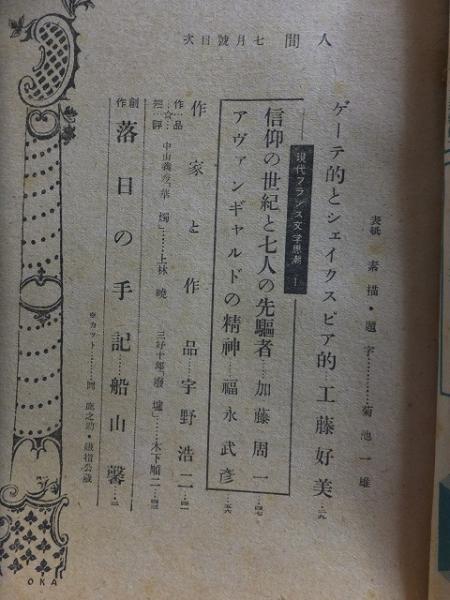 人間 七月號目次
表紙 素描・題字…………菊池一雄
ゲーテ的とシェイクスピア的…工藤好美…二九
現代フランス文学思潮
信仰の世紀と七人の先驅者……加藤周一……四七
アヴァンギャルドの精神……福永武彦……五六
作家と作品……宇野浩二……四一
作品短評
☆
中山義秀「華燭」……上林曉
三好十郎「廢墟」……木下順二
創作
落日の手記……船山馨
カット………岡鹿之助・
OKA